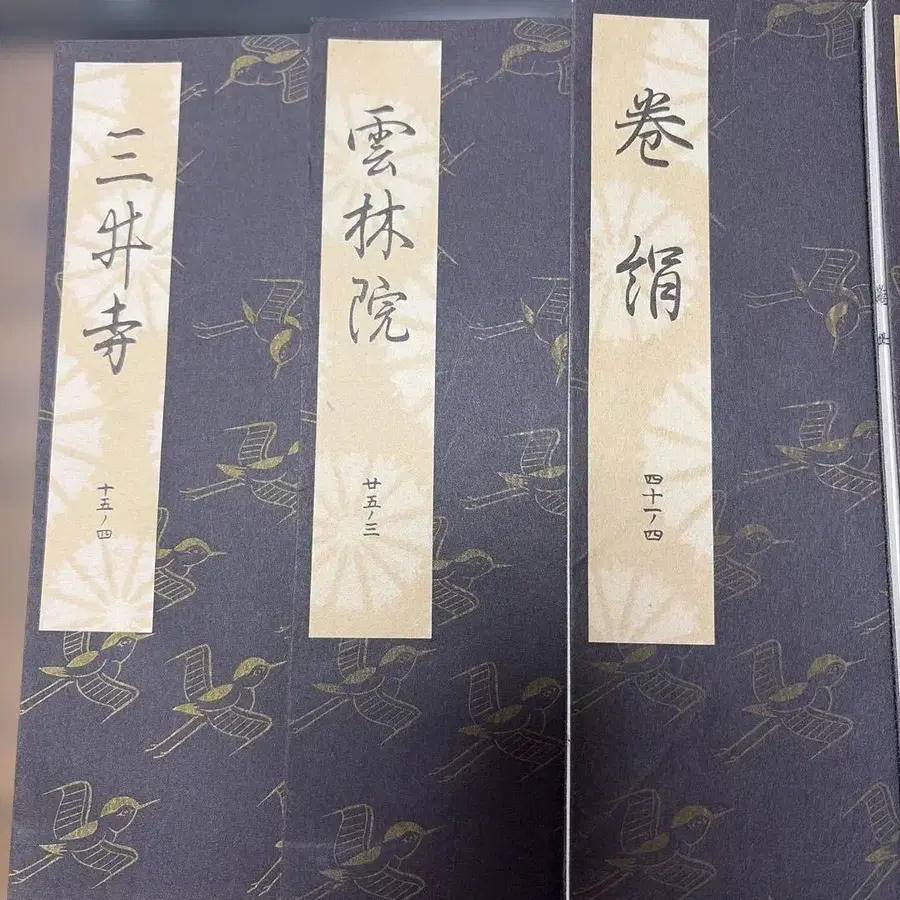 三井寺
十五ノ四
雲林院
廿五ノ三
巻絹
四十一ノ四